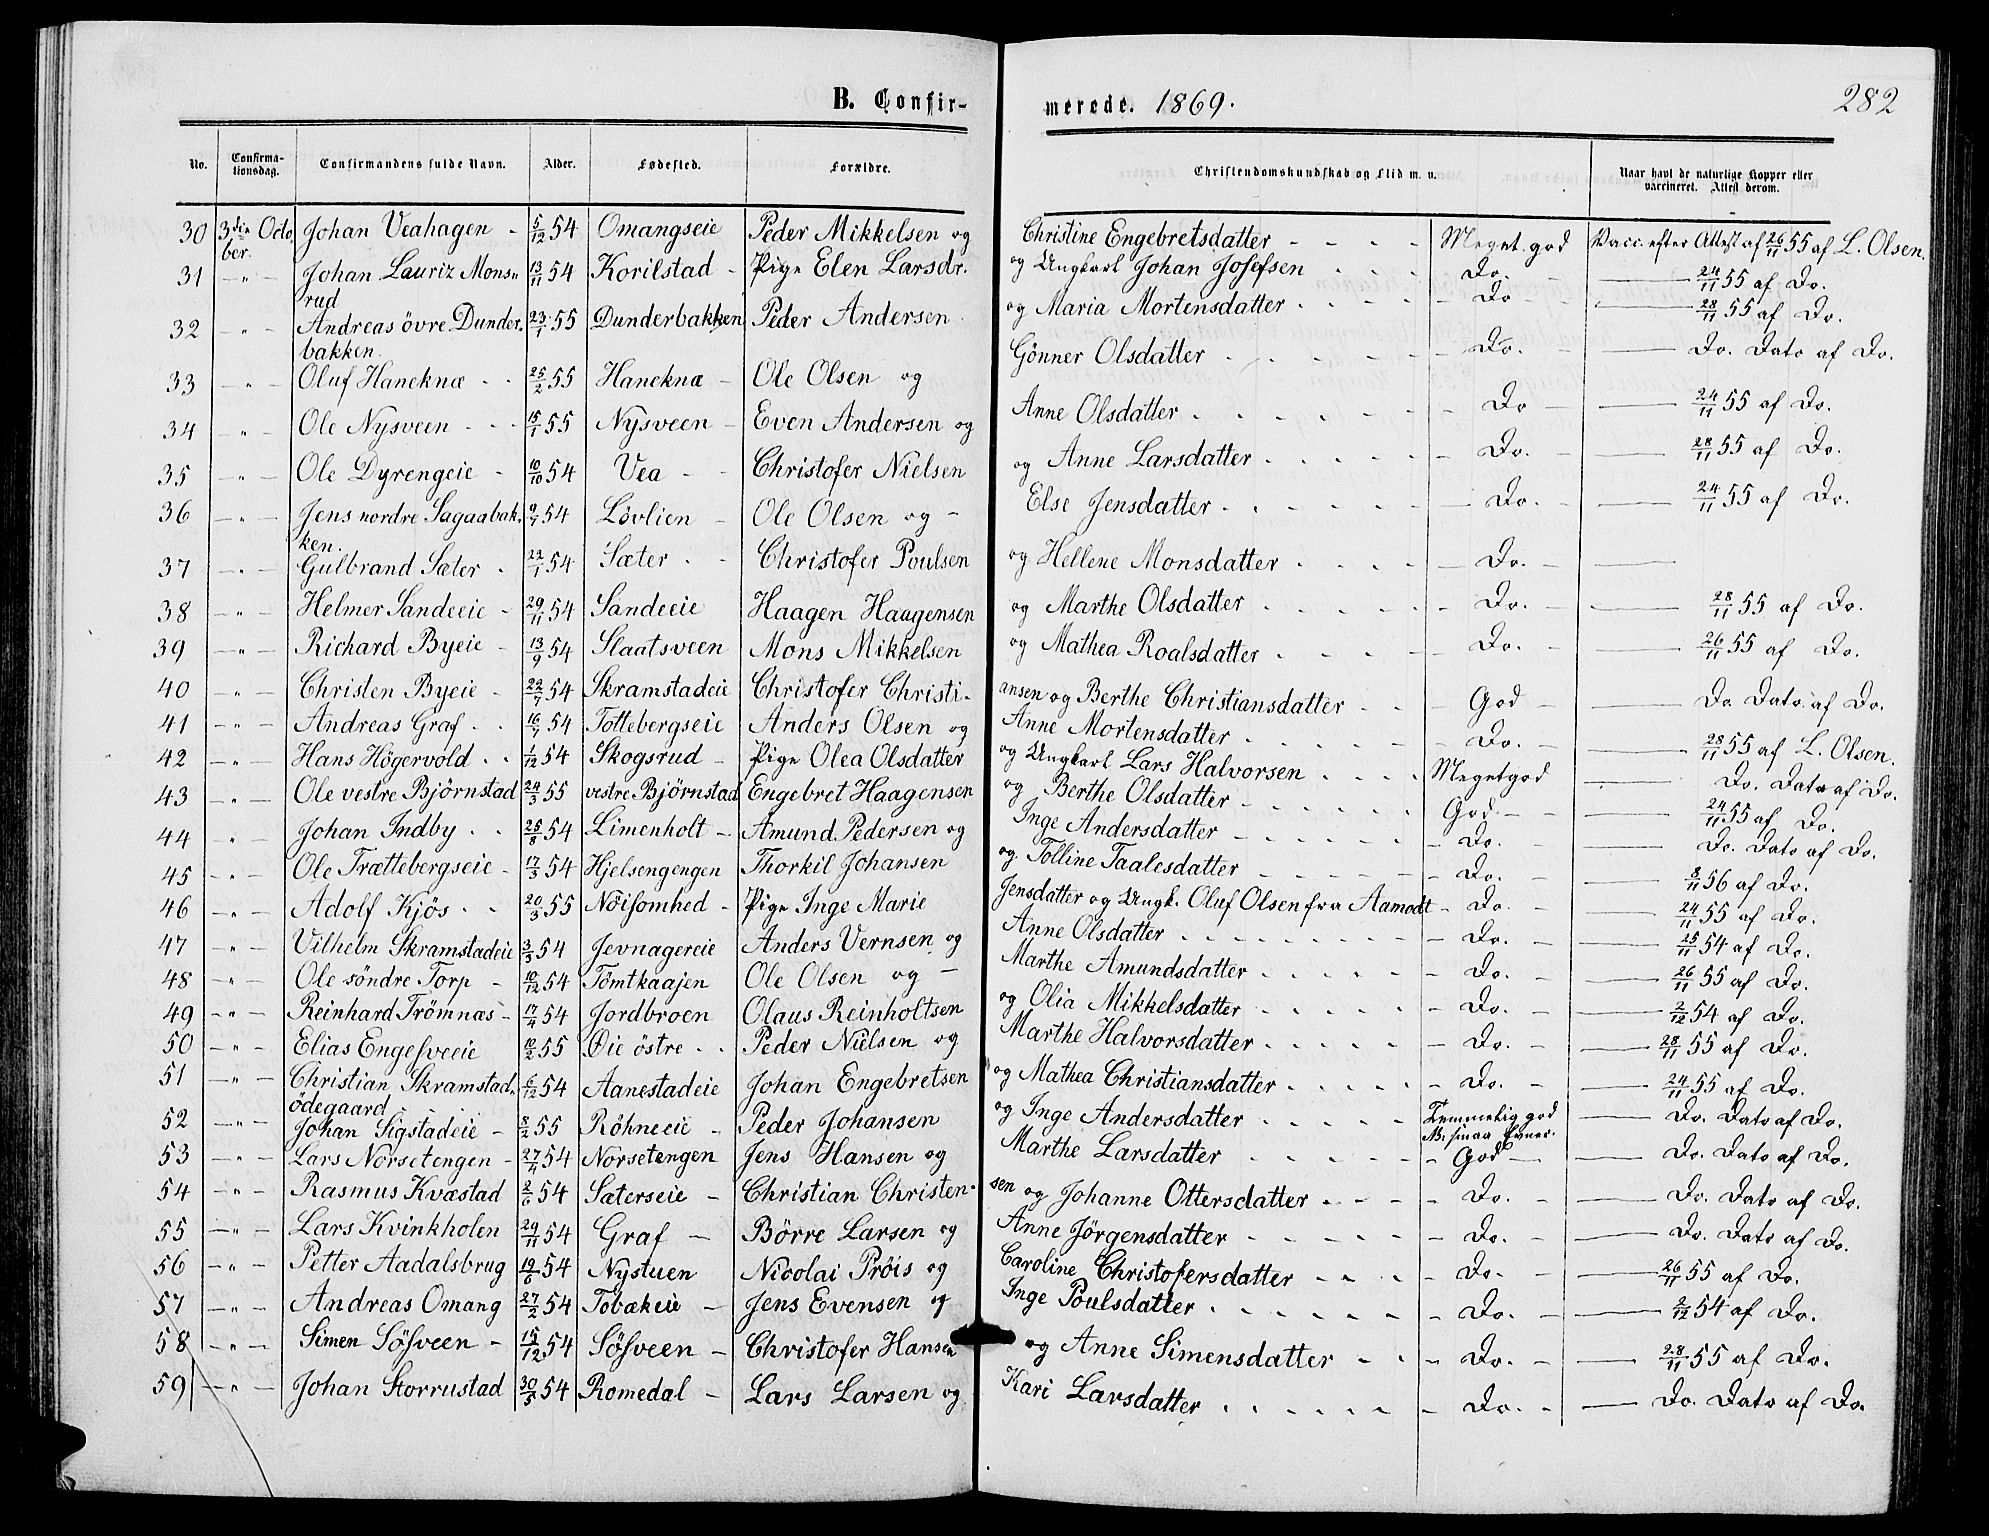 B. Confirmerede. 1869.
282
No. Confirmationsdag. Confirmandens fulde Navn. Alder. Fødested. Forældre. Christendomskundskab og Flid m. v. Naar havt de naturlige Kopper eller vaccineret. Attest derom.
30 3die October. Johan Veahagen - 5/12 54 Omangseie Peder Mikkelsen og Christine Engebretsdatter - - - - Meget god Vacc. efter Attest af 26/11 55 af L. Olsen.
31 - " - Johan Lauriz Monsrud 13/11 54 Korilstad - Pige Elen Larsdr. og Ungkarl Johan Josefsen - - - Do. - 24/11 55 af Do.
32 - " - Andreas övre Dunderbakken. 23/1 55 Dunderbakken Peder Andersen og Maria Mortensdatter - - - - Do - 28/11 55 af Do.
33 - " - Oluf Haneknæ - - 25/2 55 Haneknæ - Ole Olsen og Gönner Olsdatter - - - - - Do. - Do. Dato af Do.
34 - " - Ole Nysveen - - - 15/1 55 Nysveen - Even Andersen og Anne Olsdatter - - - - - Do - 24/11 55 af Do.
35 - " - Ole Dyrengeie - 10/10 54 Vea - - Christofer Nielsen og Anne Larsdatter - - - - - Do. - 28/11 55 af Do.
36 - " - Jens nordre Sagaabakken. 9/7 54 Lövlien - Ole Olsen og - Else Jensdatter - - - - - Do. - 24/11 55 af Do.
37 - " - Gulbrand Sæter - 22/1 54 Sæter - - Christofer Poulsen og Hellene Monsdatter - - - - Do. -
38 - " - Helmer Sandeeie - 29/11 54 Sandeeie Haagen Haagensen og Marthe Olsdatter - - - - - Do. - 28/11 55 af Do.
39 - " - Richard Byeie - 13/9 54 Slaatsveen Mons Mikkelsen og Mathea Roalsdatter - - - - Do. - 26/11 55 af Do.
40 - " - Christen Byeie - 22/7 54 Skramstadeie Christofer Christiansen og Berthe Christiansdatter - - - God - Do. Dato af Do.
41 - " - Andreas Graf - - 16/7 54 Tottebergseie Anders Olsen og Anne Mortensdatter - - - - - Do. - 28/11 55 af L. Olsen.
42 - " - Hans Högervold - - 1/12 54 Skogsrud - Pige Olea Olsdatter og Ungkarl Lars Halvorsen - - - - Meget god Do. Dato af Do.
43 - " - Ole vestre Björnstad 24/3 55 vestre Björnstad Engebret Haagensen og Berthe Olsdatter - - - - - God - - 24/11 55 af Do.
44 - " - Johan Indby - - 25/8 54 Limenholt - Amund Pedersen og Inge Andersdatter - - - - - Do. - Do. Dato af Do.
45 - " - Ole Trættebergseie - 17/3 54 Hjelsengengen Thorkil Johansen og Tolline Taalesdatter - - - - - Do. - 8/11 56 af Do.
46 - " - Adolf Kjös - - 20/3 55 Nöisomhed - Pige Inge Marie Jensdatter og Ungk. Oluf Olsen fra Aamodt - Do. - 24/11 55 af Do.
47 - " - Vilhelm Skramstadeie 3/3 54 Jevnagereie Anders Vernsen og Anne Olsdatter - - - - - Do. - 25/11 54 af Do.
48 - " - Ole söndre Torp - 10/12 54 Tömtkaajen Ole Olsen og - Marthe Amundsdatter - - - - - Do. - 26/11 55 af Do.
49 - " - Reinhard Trömnæs - 17/4 54 Jordbroen Olaus Reinholtsen og Olia Mikkelsdatter - - - - - Do. - 2/12 54 af Do.
50 - " - Elias Engesveeie 10/2 55 Øie östre - - Peder Nielsen og Marthe Halvorsdatter - - - - - Do. - 28/11 55 af Do.
51 - " - Christian Skramstadödegaard 6/12 54 Aanestadeie Johan Engebretsen og Mathea Christiansdatter - - - - - Do. - 24/11 55 af Do.
52 - " - Johan Sigstadeie - 8/2 55 Röhneeie - Peder Johansen og Inge Andersdatter - - - - - Temmelig god Do. Dato af Do.
N. smaa Evner.
53 - " - Lars Norsetengen - 27/4 54 Norsetengen Jens Hansen og Marthe Larsdatter - - - - - God - Do. Dato af Do.
54 - " - Rasmus Kvæstad 2/6 54 Sæterseie - Christian Christensen og Johanne Ottersdatter - - - - Do. - Do. Dato af Do.
55 - " - Lars Kvinkholen 29/11 54 Graf - Börre Larsen og Anne Jörgensdatter - - - - - Do. - Do. Dato af Do.
56 - " - Petter Aadalsbrug 19/6 54 Nystuen Nicolai Pröis og Caroline Christofersdatter - - - - Do. - 26/11 55 af Do.
57 - " - Andreas Omang 27/2 54 Tobækeie - Jens Evensen og Inge Poulsdatter - - - - - Do. - 2/12 54 af Do.
58 - " - Simen Sösveen - 15/12 54 Sösveen - Christofer Hansen og Anne Simensdatter - - - Do. - 28/11 55 af Do.
59 - " - Johan Storrustad 30/5 54 Romedal - Lars Larsen og Kari Larsdatter - - - - - Do. - Do. Dato af Do.